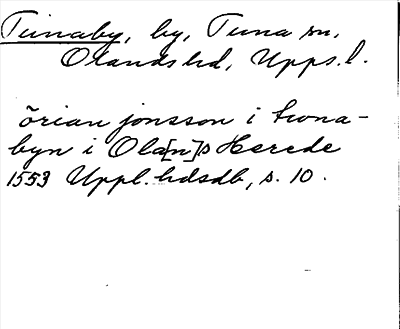 Tunaby, by, Tuna sn,
Olands hd, Upps. l.
örian jonsson i tuna-
byn i Ola[n]s Herede
1553 Uppl. hdsdb, s. 10.